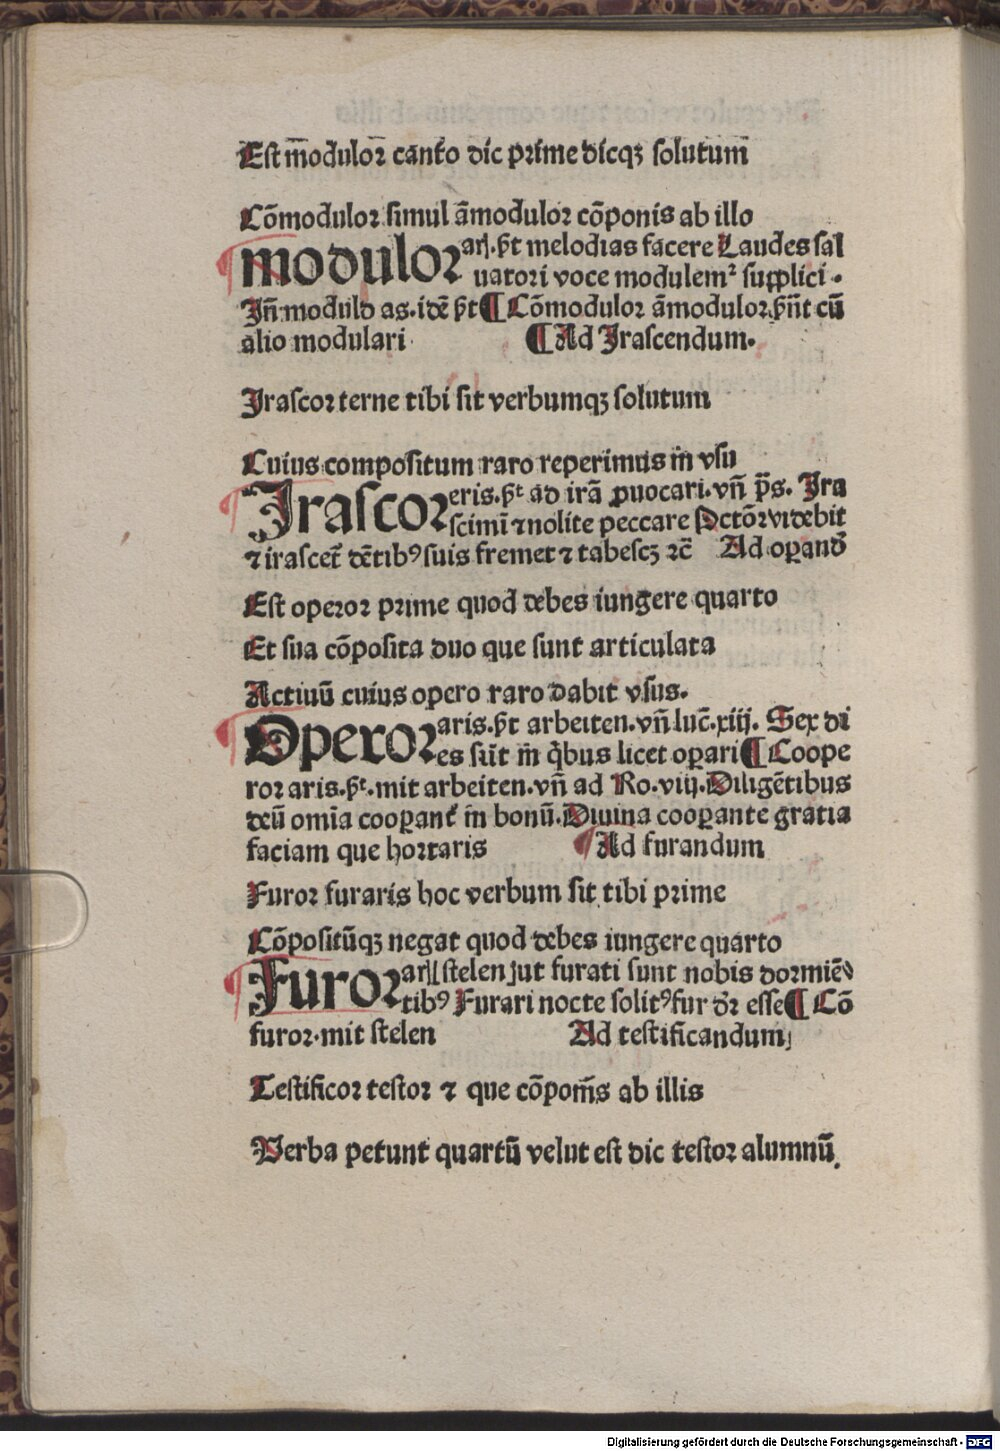 Est m̄odulor̄ canto dic prime dicqꝫ solutum̄
Cōmodulor simul āmodulor cōponis ab illo
modulor arĳ. ꝑ̄t melodias facere Laudes sal
uatori voce modulemˀ supplici.
Jn̄ modulo as. idē ꝑ̄t ¶ Cōmodulor āmodulor. ꝑ̄nt cū
alio modulari ¶ Ad Jrascendum.
Jrascor terne tibi sit verbumqꝫ solutum
Cuius compositum raro reperimus in̄ vsu
Jrascor eris. ꝑᵗ ad irā ꝓuocari. vn̄ p̄s. Jra
scimi ⁊ nolite peccare Pctōꝛ videbit
⁊ irascet̄ dētibꝰ suis fremet ⁊ tabescꝫ ⁊c̄ Ad oꝑand̄
Est operor prime quod debes iungere quarto
Et sua cōposita duo que sunt articulata
Actiuū cuius opero raro dabit vsus.
Operor aris. ꝑ̄t arbeiten. vn̄ luc̄. xiij. Sex di
es sūt in̄ q̄bus licet oꝑari ¶ Coope
ror aris. ꝑᵗ. mit arbeiten. vn̄ ad Ro. viij. Diligētibus
deū omīa cooꝑant᷑ in bonū. Diuina cooꝑante gratia
faciam que hortaris ¶ Ad furandum
Furor furaris hoc verbum sit tibi prime
Cōpositūqꝫ negat quod debes iungere quarto
Furor arĳ stelen ut furati sunt nobis dormiē
tibꝰ Furari nocte solitꝰ fur dr̄ esse ¶ Cō
furor. mit stelen Ad testificandum
Testificor testor ⁊ que cōpoīs ab illis
Verba petunt quartū velut est dic testor alumnū.
Digitalisierung gefördert durch die Deutsche Forschungsgemeinschaft - DFG